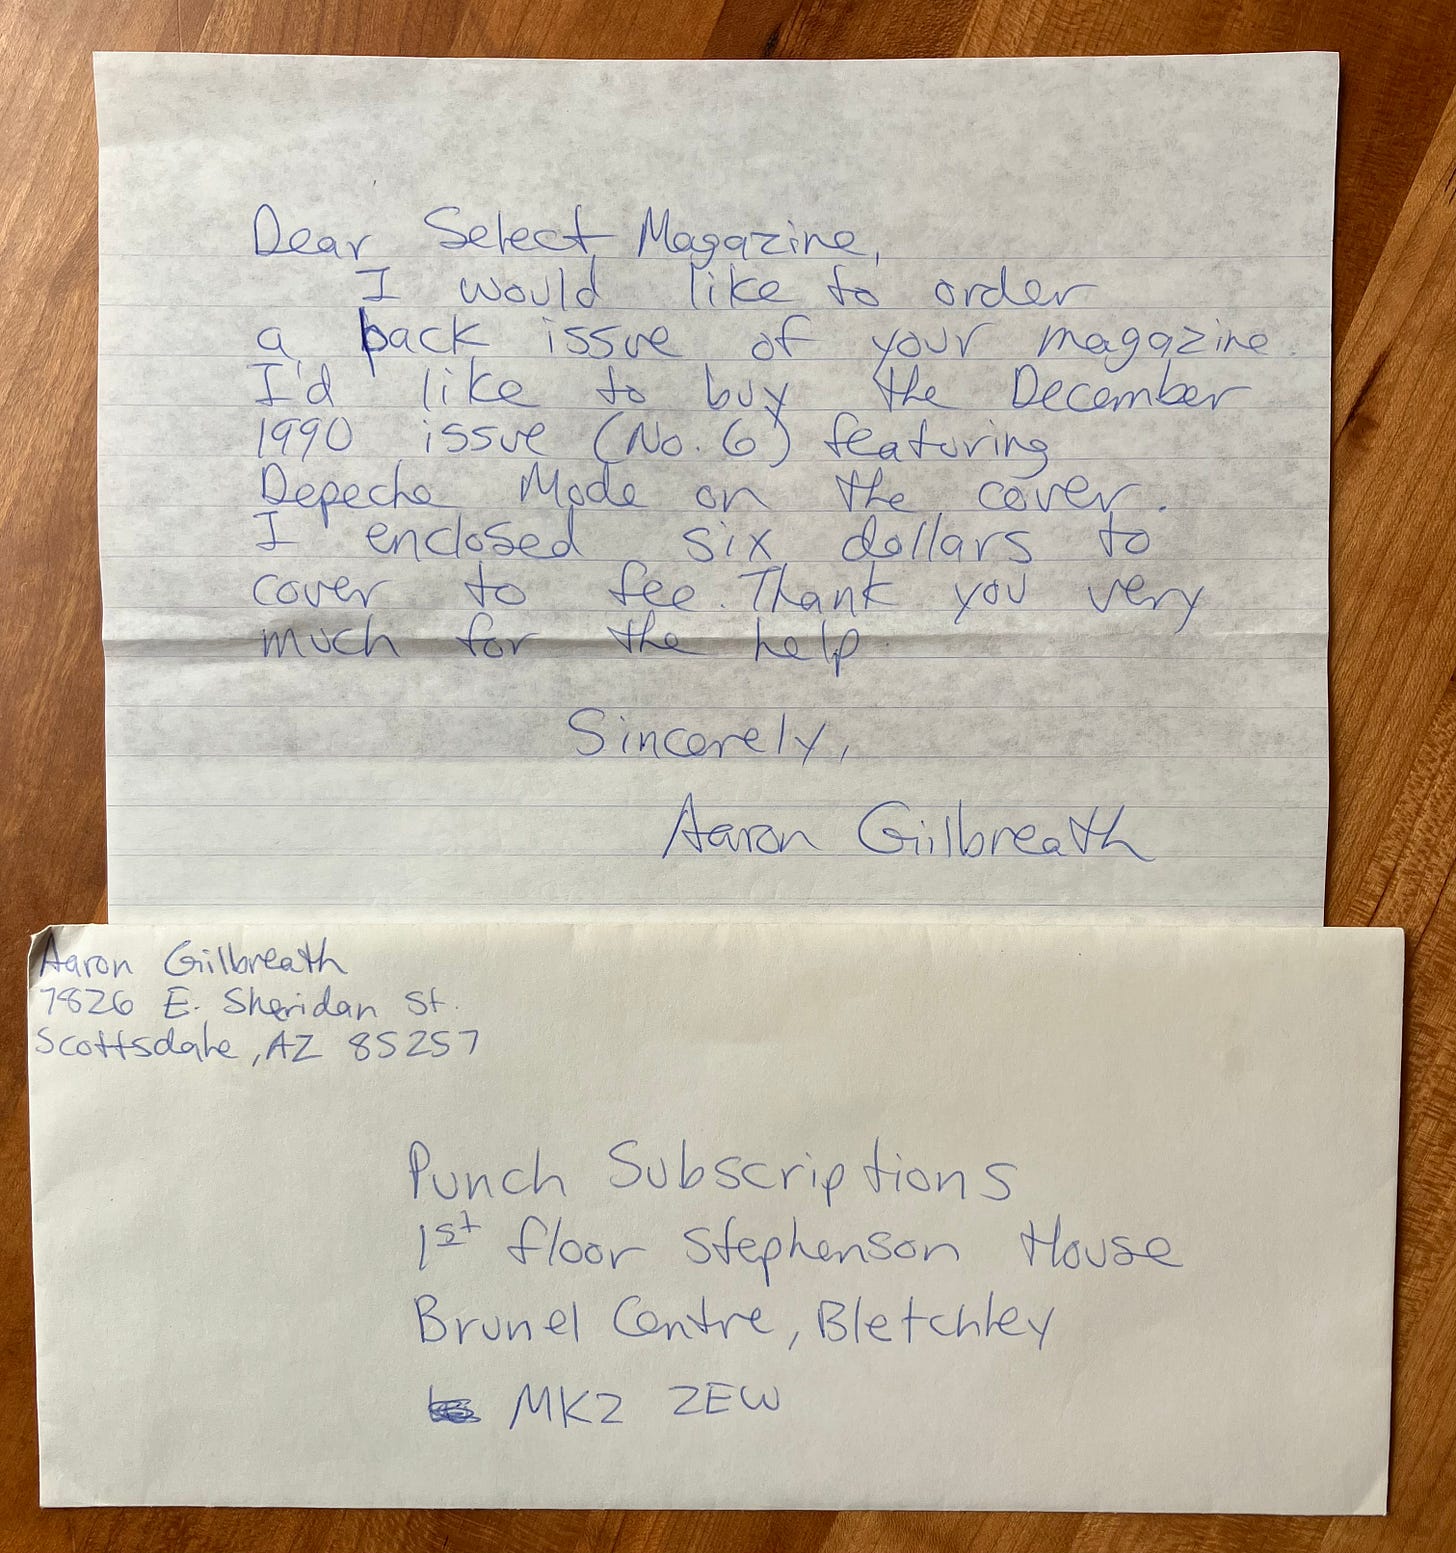 Dear Select Magazine,
I would like to order
a back issue of your magazine.
I'd like to buy the December
1990 issue (No. 6) featuring
Depeche Mode on the cover.
I enclosed six dollars to
cover to fee. Thank you very
much for the help.
Sincerely,
Aaron Gilbreath
Aaron Gilbreath
7826 E. Sheridan St.
Scottsdale, AZ 85257
Punch Subscriptions
1st floor Stephenson House
Brunel Centre, Bletchley
MK2 2EW